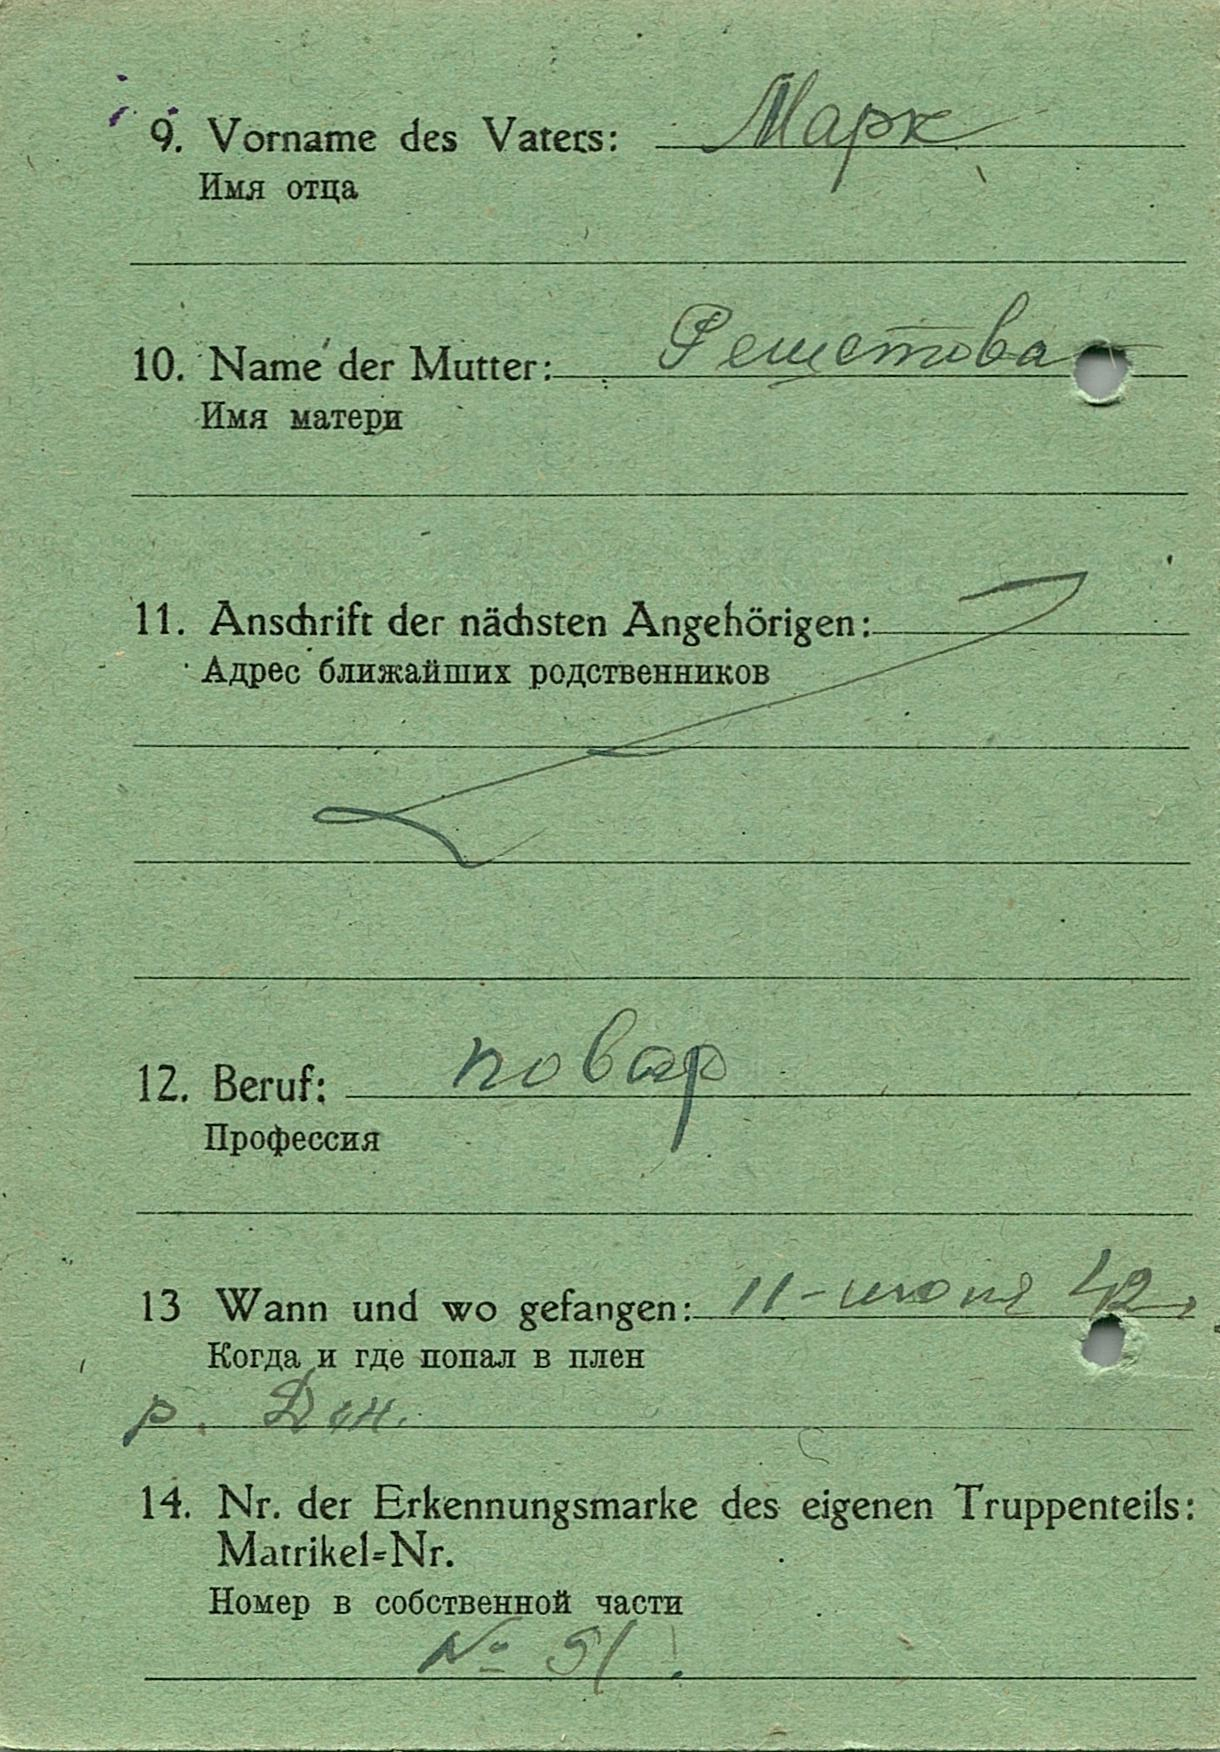 9. Vorname des Vaters: Марк
Имя отца
10. Name der Mutter: Решетова
Имя матери
11. Anschrift der nächsten Angehörigen:
Адрес ближайших родственников
12. Beruf: повар
Профессия
13 Wann und wo gefangen: 11-июня 42
Когда и где попал в плен
р. Дон.
14. Nr. der Erkennungsmarke des eigenen Truppenteils:
Matrikel=Nr.
Номер в собственной части
№ 51